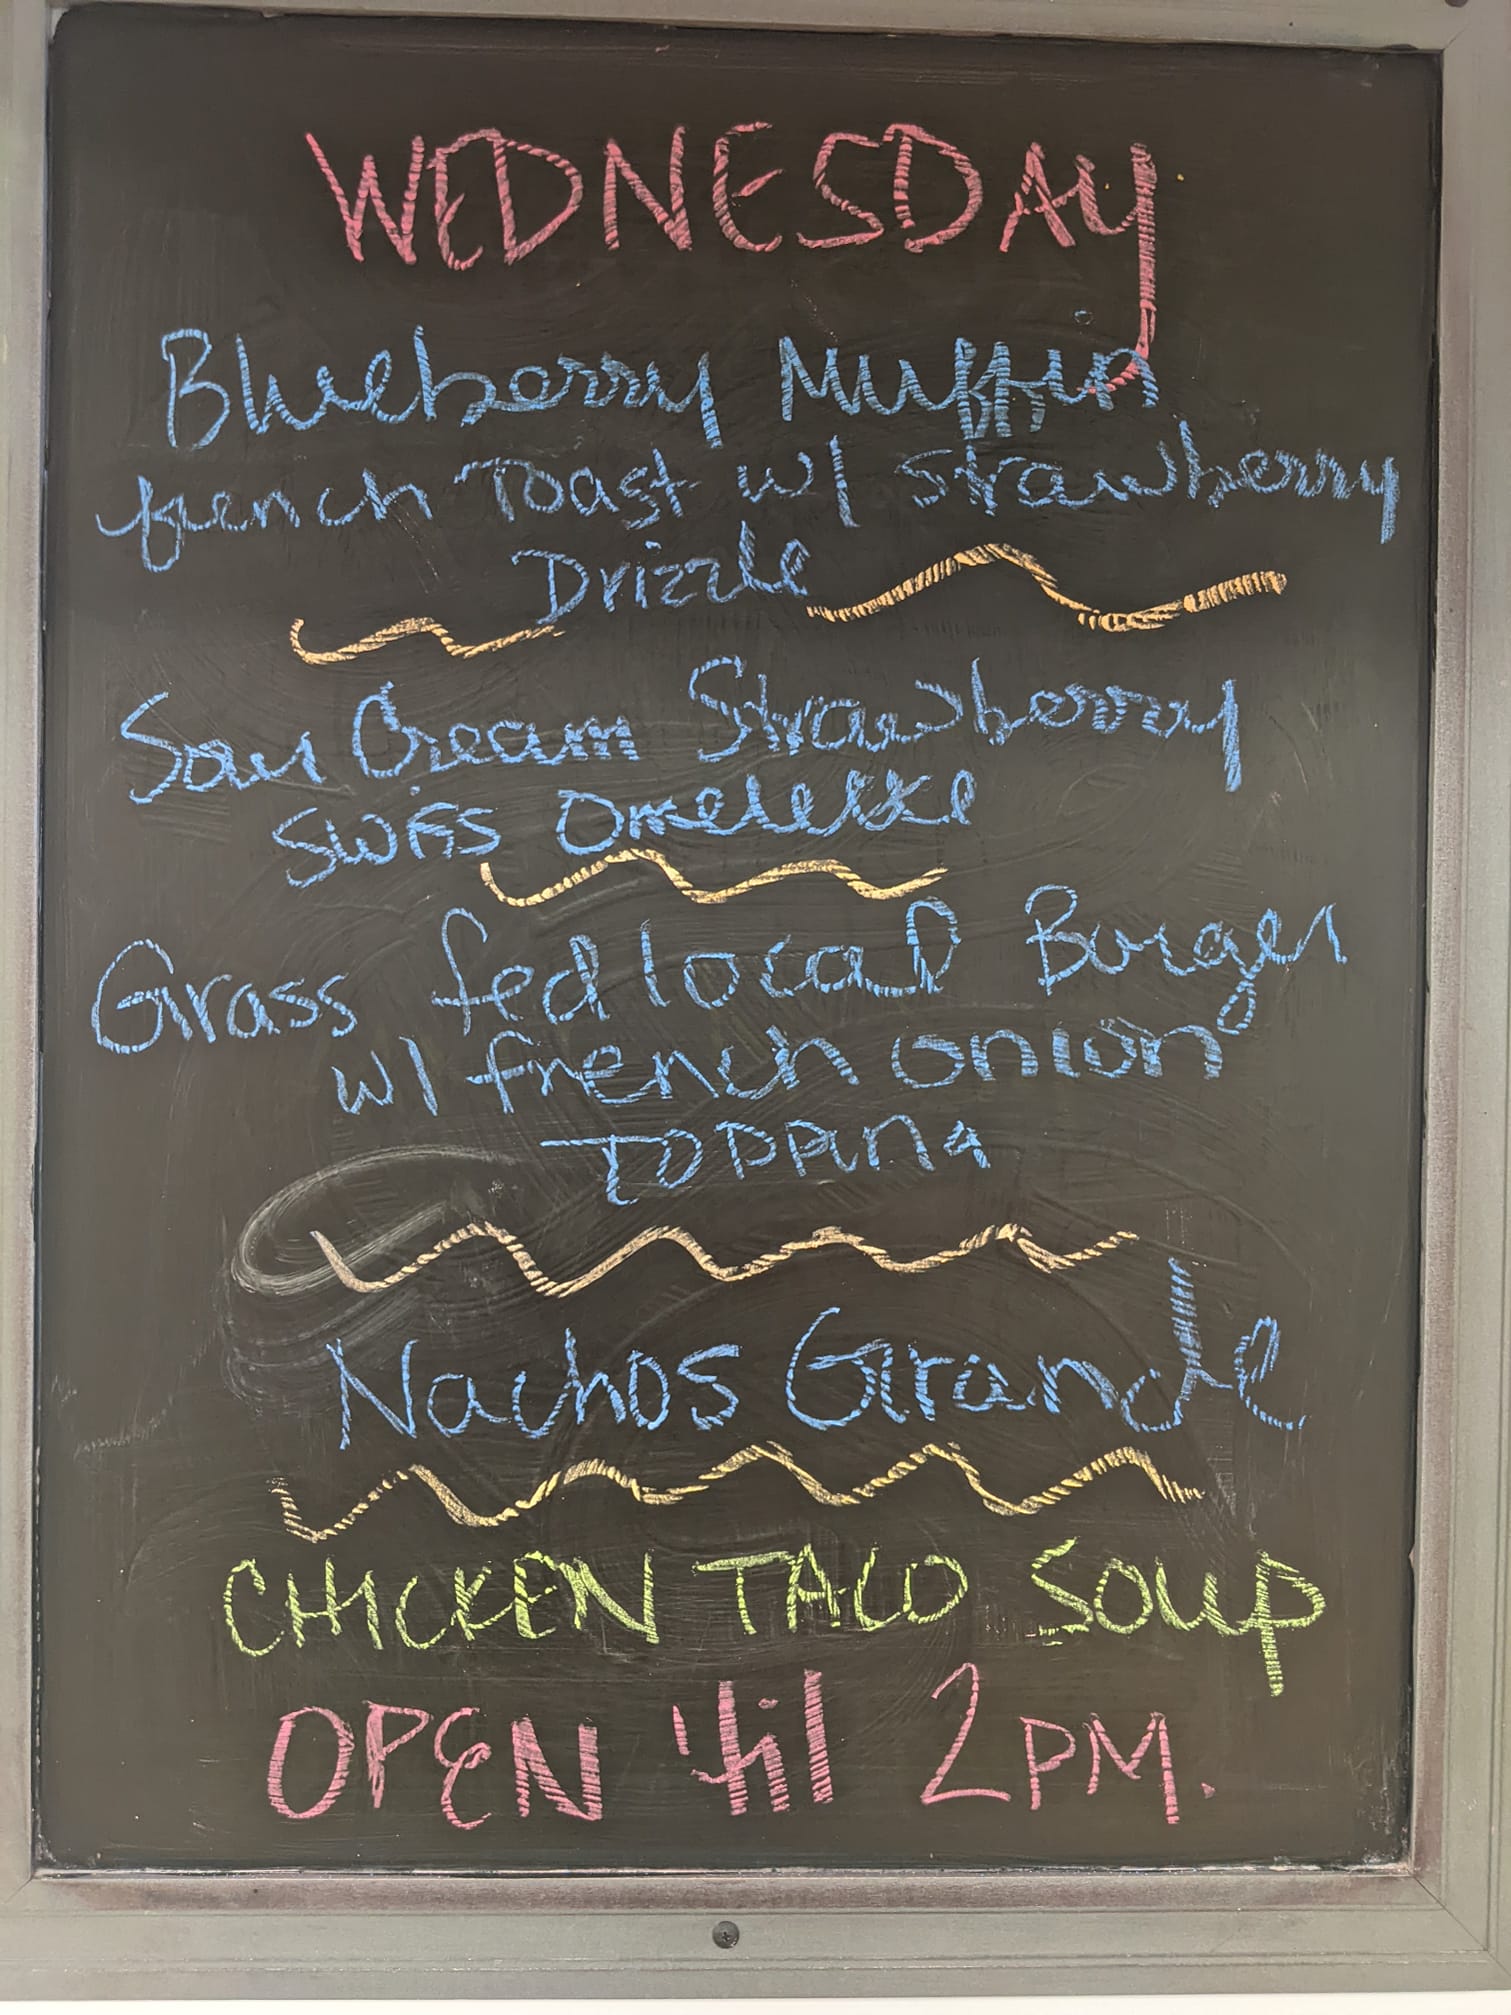 WEDNESDAY
Blueberry Muffin
french Toast w/ strawberry
Drizzle
Sour Cream Strawberry
SWiSS Omelette
Grass fed local Burger
w/ french onion
TOPPING
Nachos Grande
CHICKEN TACO SOUP
OPEN 'til 2PM.